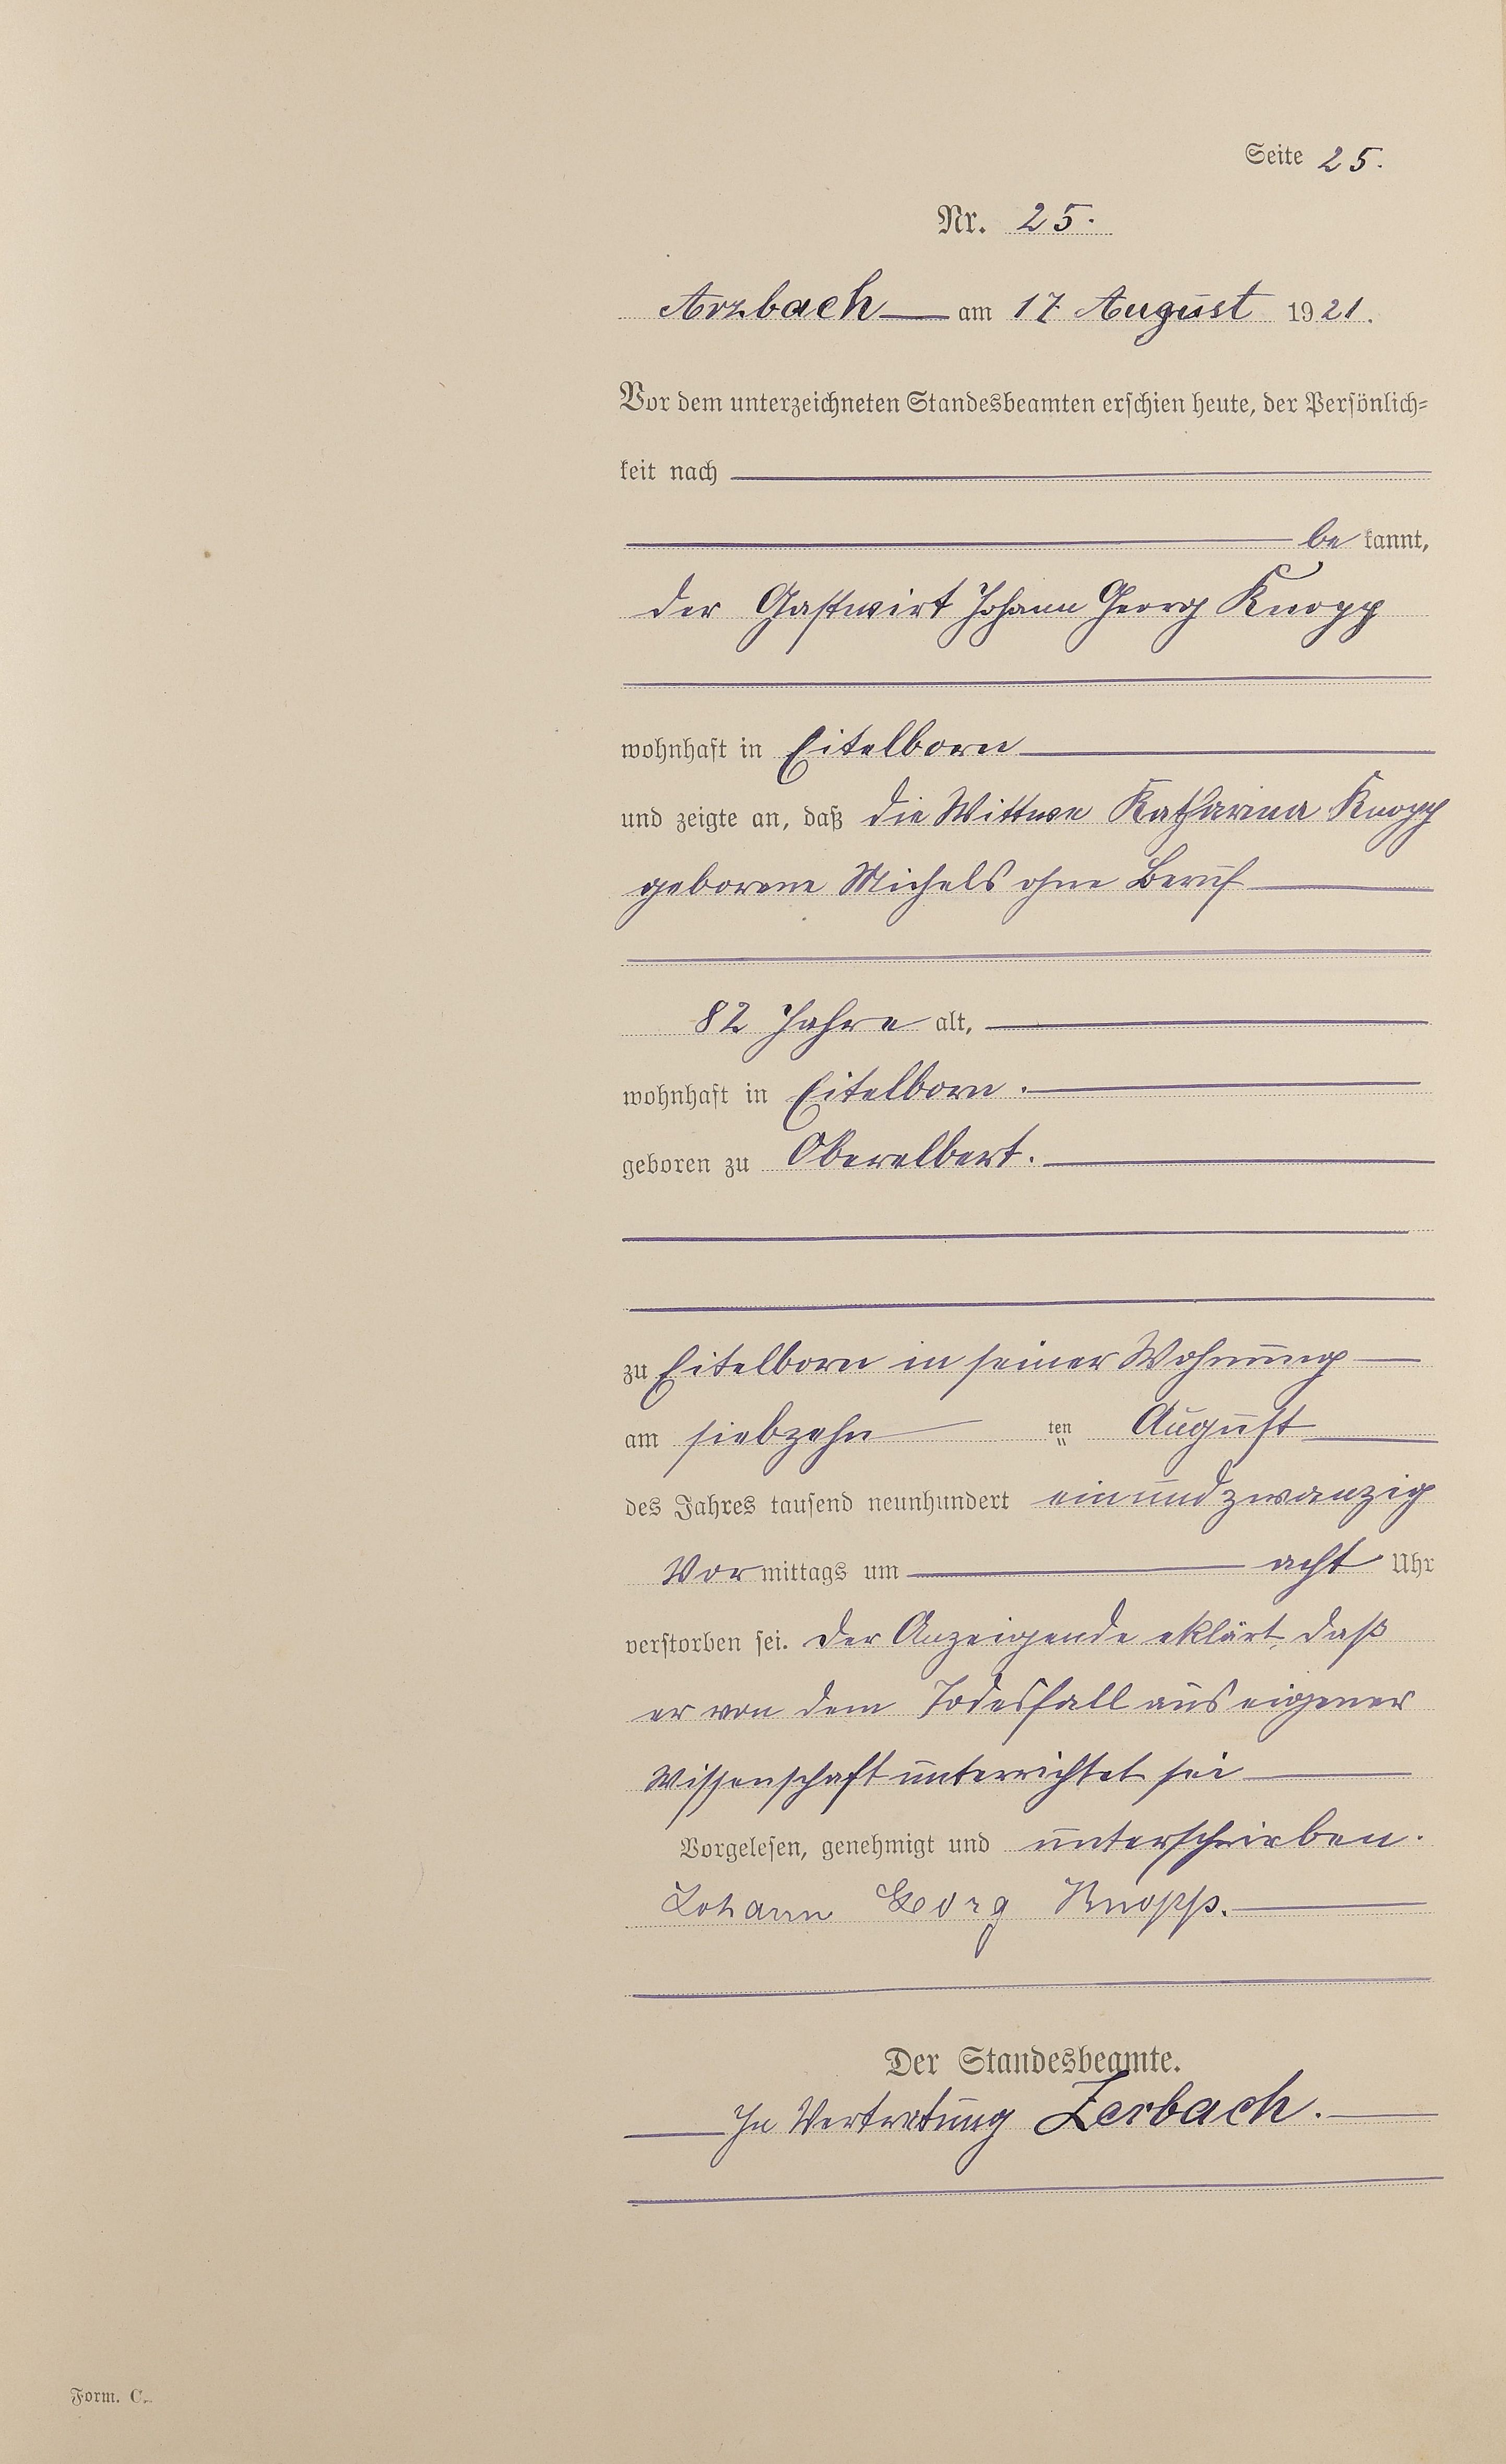 Seite 25.
Nr. 25.
Arzbach am 17 August 1921.
Vor dem unterzeichneten Standesbeamten erschien heute, der Persönlich-
keit nach
be kannt,
der Gastwirt Johann Georg Knopp
wohnhaft in Eitelborn
und zeigte an, daß die Wittwe Katharina Knopp
geborene Michels ohne Beruf
82 Jahre alt,
wohnhaft in Eitelborn.
geboren zu Oberelbert.
zu Eitelborn in seiner Wohnung
am siebzehn ten August
des Jahres tausend neunhundert einundzwanzig
Vor mittags um acht Uhr
verstorben sei. Der Anzeigende eklärt, daß
er von dem Todesfall aus eigener
Wissenschaft unterrichtet sei
Vorgelesen, genehmigt und unterschrieben.
Johann Georg Knopp.
Der Standesbeamte.
In Vertretung Zerbach.
Form. C.